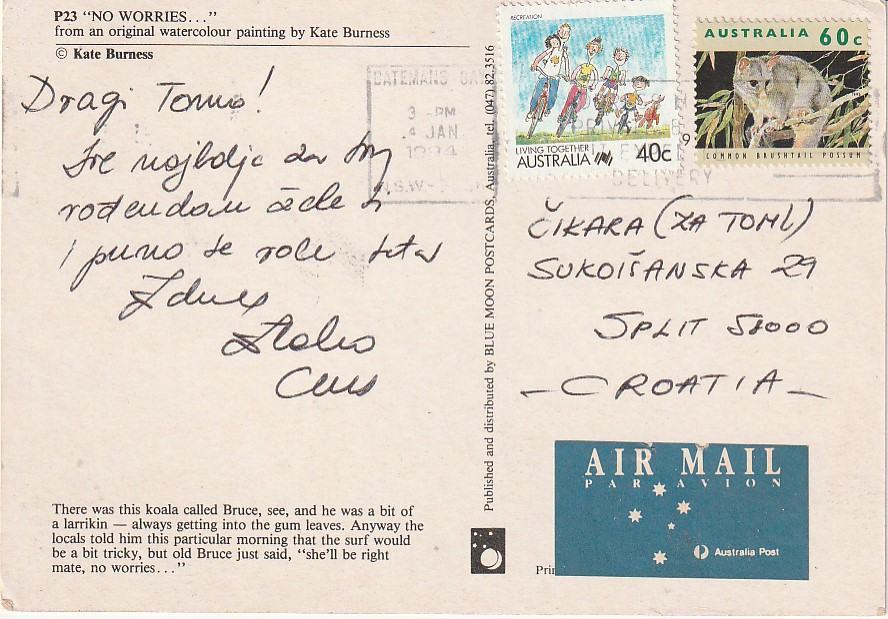 P23 "NO WORRIES..."
from an original watercolour painting by Kate Burness
© Kate Burness
Dragi Tomo!
Sve najbolje za tvoj
rođendan žele ti
i puno te vole teta
BATEMANS BAY
3 -PM
4 JAN
1994
N.S.W.-
DELIVERY
RECREATION
LIVING TOGETHER
AUSTRALIA 40c
AUSTRALIA 60c
COMMON BRUSHTAIL POSSUM
Published and distributed by BLUE MOON POSTCARDS, Australia, tel. (047) 82 3516
ČIKARA (ZA TOMI)
SUKOIŠANSKA 29
SPLIT 58000
- CROATIA -
AIR MAIL
PAR AVION
Australia Post
There was this koala called Bruce, see, and he was a bit of
a larrikin — always getting into the gum leaves. Anyway the
locals told him this particular morning that the surf would
be a bit tricky, but old Bruce just said, "she'll be right
mate, no worries..."
Prin